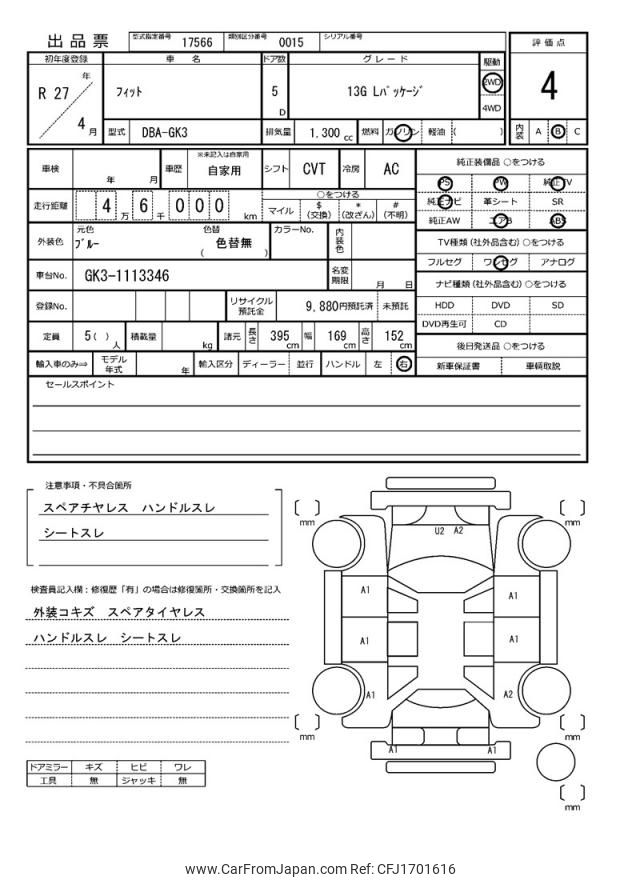 出品票
型式指定番号 17566 類別区分番号 0015 シリアル番号
初年度登録 車名 ドア数 グレード 駆動 評価点
R 27 年 4 月 フィット 5 D 13G Lパッケージ 2WD 4WD 4
型式 DBA-GK3 排気量 1,300 cc 燃料 ガソリン 軽油 ( ) 内装 A B C
車検 年 月 車歴 ※未記入は自家用 自家用 シフト CVT 冷房 AC
走行距離 4 万 6 千 0 0 0 km ○をつける
マイル $ (交換) * (改ざん) # (不明)
外装色 元色 ブルー 色替 ( 色替無 ) カラーNo. 内装色
車台No. GK3-1113346 名変期限 月 日
登録No. リサイクル預託金 9,880円預託済 未預託
定員 5 ( ) 人 積載量 kg 諸元 長さ 395 cm 幅 169 cm 高さ 152 cm
輸入車のみ⇒ モデル年式 年 輸入区分 ディーラー 並行 ハンドル 左 右
純正装備品 ○をつける
PS PW 純正TV
純正ナビ 革シート SR
純正AW エアB ABS
TV種類 (社外品含む) ○をつける
フルセグ ワンセグ アナログ
ナビ種類 (社外品含む) ○をつける
HDD DVD SD
DVD再生可 CD
後日発送品 ○をつける
新車保証書 車輌取説
セールスポイント
注意事項・不具合箇所
スペアチヤレス ハンドルスレ
シートスレ
検査員記入欄：修復歴「有」の場合は修復箇所・交換箇所を記入
外装コキズ スペアタイヤレス
ハンドルスレ シートスレ
ドアミラー キズ ヒビ ワレ
工具 無 ジャッキ 無
mm mm
U2 A2
A1 A1
A1 A1
A1 A2
mm mm
A1 A1
mm
www.CarFromJapan.com Ref: CFJ1701616